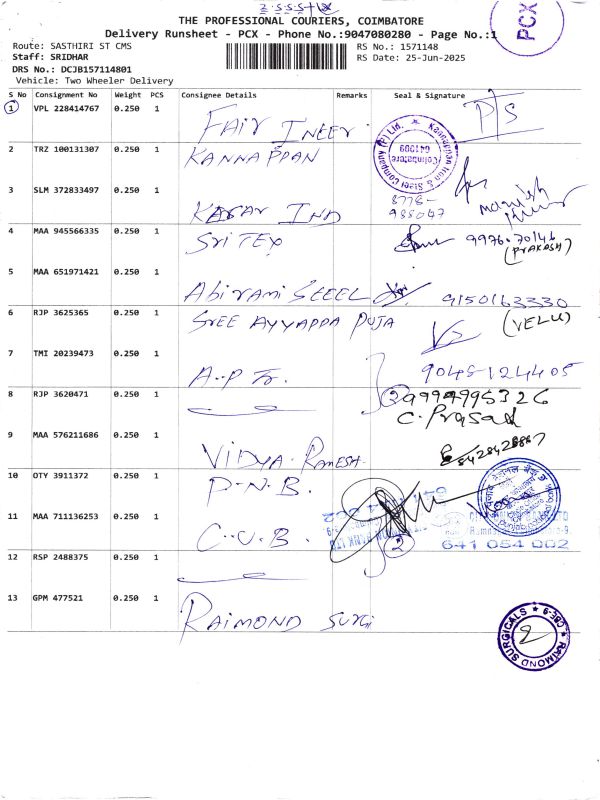 THE PROFESSIONAL COURIERS, COIMBATORE
PCX
Delivery Runsheet - PCX - Phone No.:9047080280 - Page No.:1
Route: SASTHIRI ST CMS
RS No.: 1571148
Staff: SRIDHAR
RS Date: 25-Jun-2025
DRS No.: DCJB157114801
Vehicle: Two Wheeler Delivery
S No Consignment No Weight PCS Consignee Details Remarks Seal & Signature
1 VPL 228414767 0.250 1 FAIR INEER
2 TRZ 100131307 0.250 1 KANNAPPAN
Kannappan Iron & Steel Company (P) Ltd.
Coimbatore
641009
3 SLM 372833497 0.250 1 KASAR IND
8778-
988047
4 MAA 945566335 0.250 1 SRI TEX 9976-70146
(PRAKASH)
5 MAA 651971421 0.250 1 Abirami STEEL 9150163330
6 RJP 3625365 0.250 1 SREE AYYAPPA PUJA (VELU)
7 TMI 20239473 0.250 1 A-P Tr. 9045-124405
8 RJP 3620471 0.250 1 2 9994995326
C. Prasad
9 MAA 576211686 0.250 1 VIDYA Ramesh 8428428887
10 OTY 3911372 0.250 1 P.N.B.
11 MAA 711136253 0.250 1 C.U.B. 2
641 054 002
12 RSP 2488375 0.250 1
13 GPM 477521 0.250 1 RAIMOND SURGI
RAIMOND SURGICALS
CBE-9
2